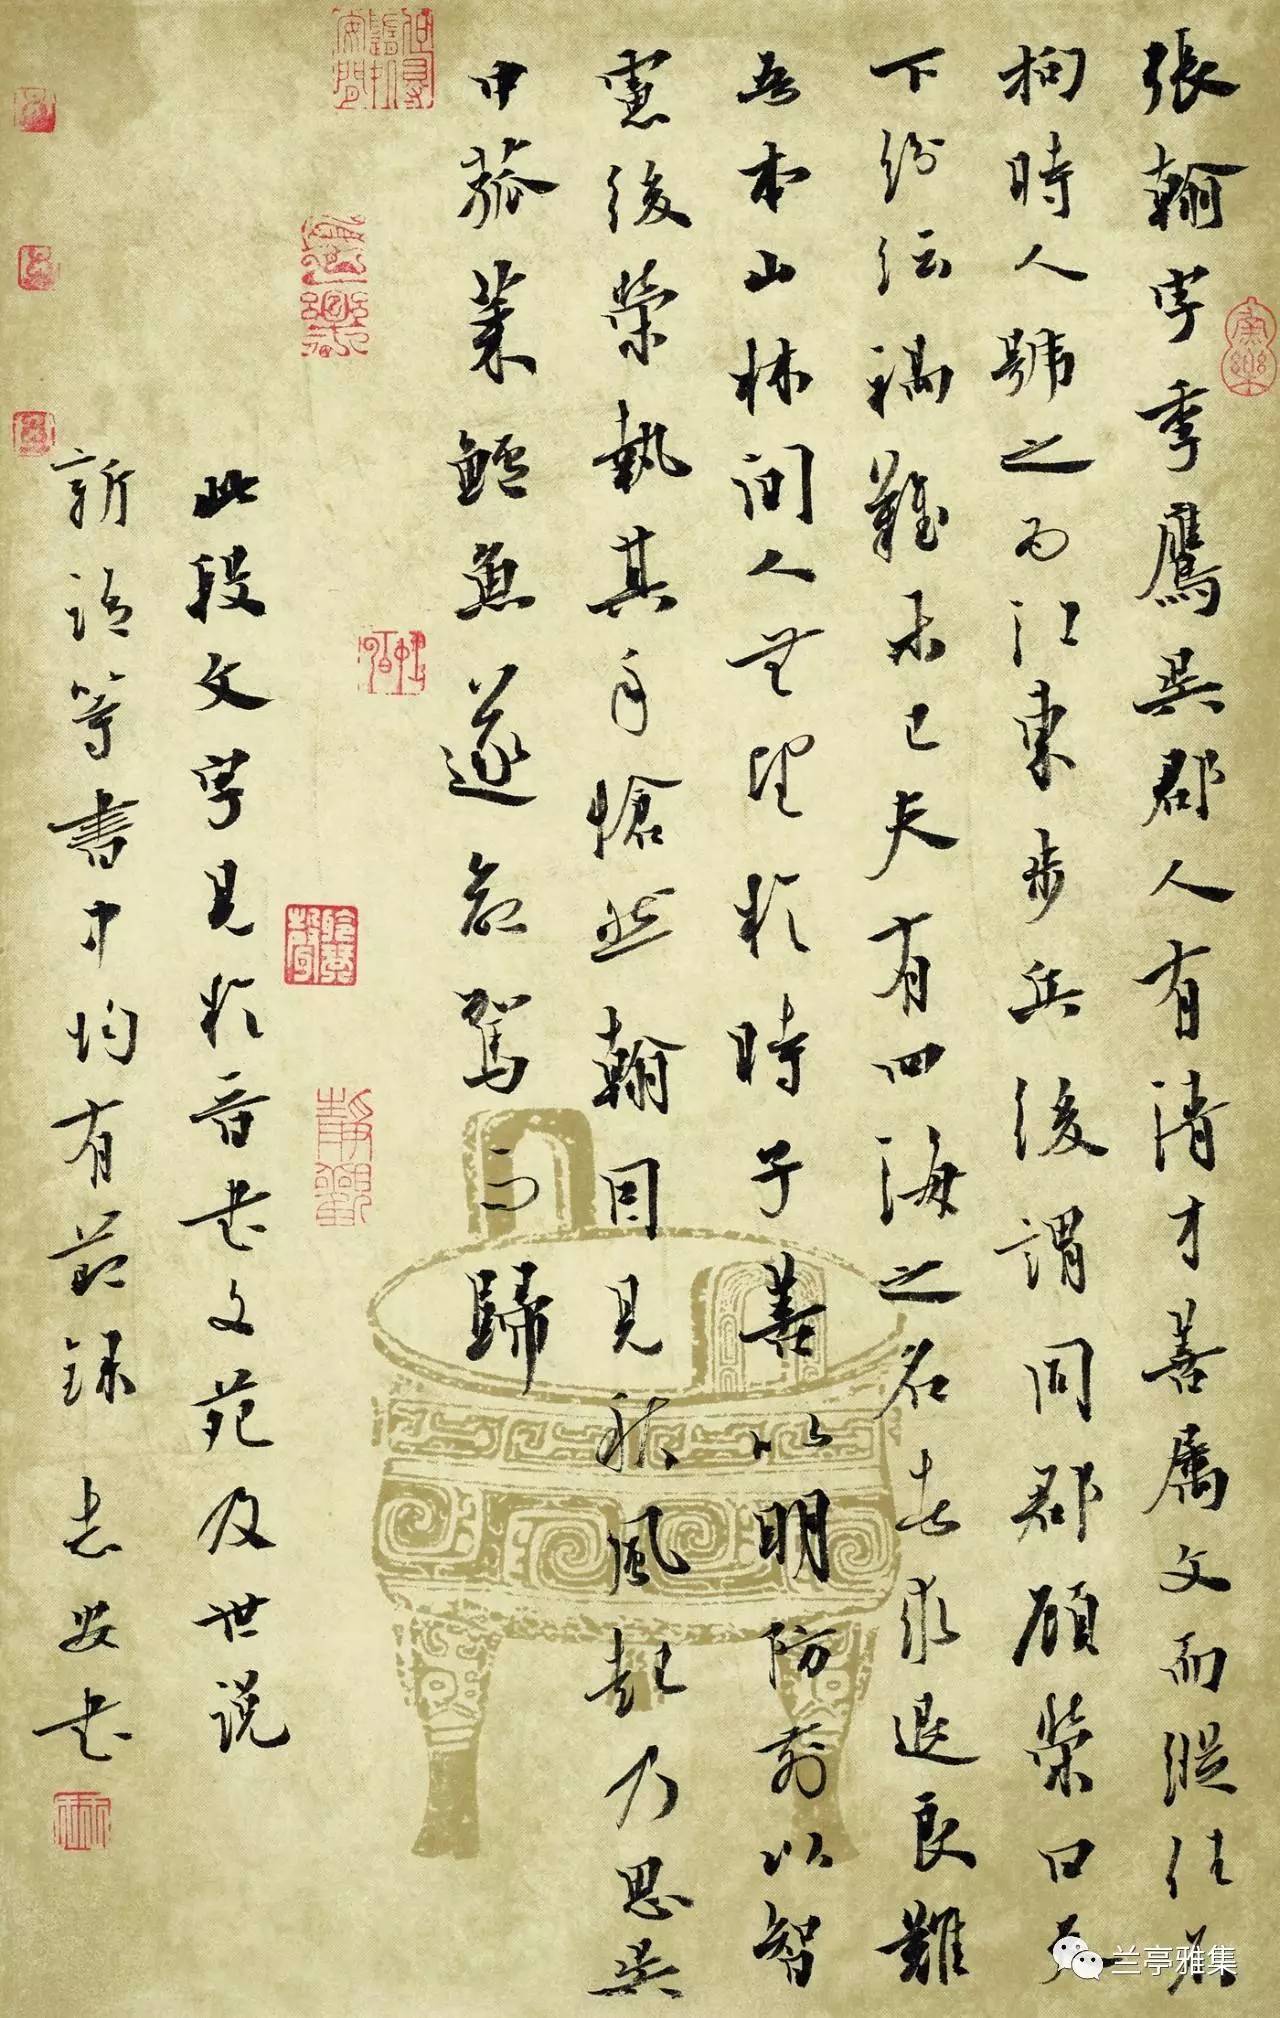 張翰字季鷹吳郡人有清才善屬文而縱任不
拘時人號之為江東步兵後謂同郡顧榮曰天
下紛紜禍難未已夫有四海之名者求退良難
吾本山林間人無望於時子善以明防前以智
慮後榮執其手愴然翰因見秋風起乃思吳
中菰菜鱸魚遂命駕而歸
此段文字見於晉書文苑及世说
新語等書中均有節録 志安書
兰亭雅集